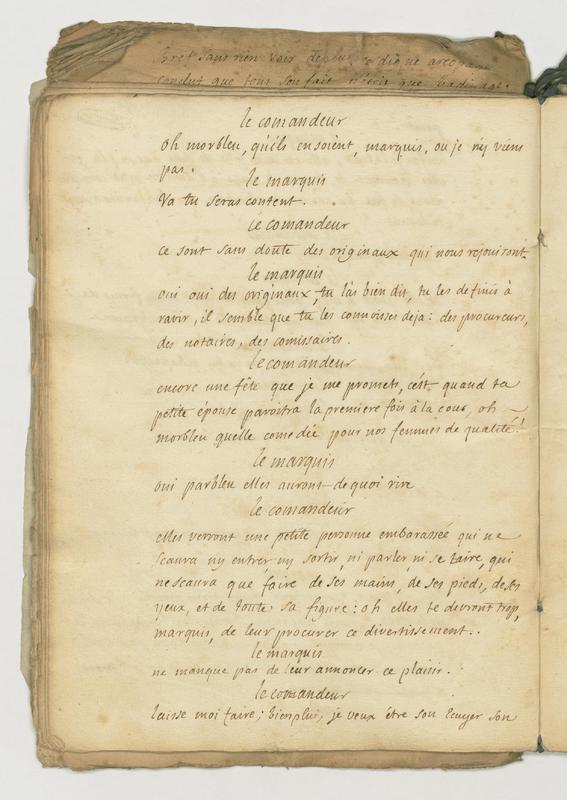 Bref sans rien voir de plus
conclut que tous son fait n'etoit que badinage.
le comandeur
oh morbleu, qu'ils en soient, marquis, ou je n'y viens
pas.
le marquis
va tu seras content.
le comandeur
ce sont sans doute des originaux qui nous rejouiront
le marquis
oui oui des originaux, tu l'as bien dit, tu les definis à
ravir, il semble que tu les connoisses deja: des procureurs,
des notaires, des comissaires.
le comandeur
encore une fête que je me promets, c'est quand ta
petite épouse paroitra la premiere fois à la cour, oh
morbleu quelle comedie pour nos femmes de qualité!
le marquis
oui parbleu elles auront de quoi rire
le comandeur
elles verront une petite personne embarassée qui ne
scaura ny entrer ny sortir, ni parler ni se taire, qui
ne scaura que faire de ses mains, de ses pieds, de ses
yeux, et de toute sa figure: oh elles te devront trop,
marquis, de leur procurer ce divertissement..
le marquis
ne manque pas de leur annoncer ce plaisir.
le comandeur
laisse moi faire; bien plus, je veux être son Ecuyer son